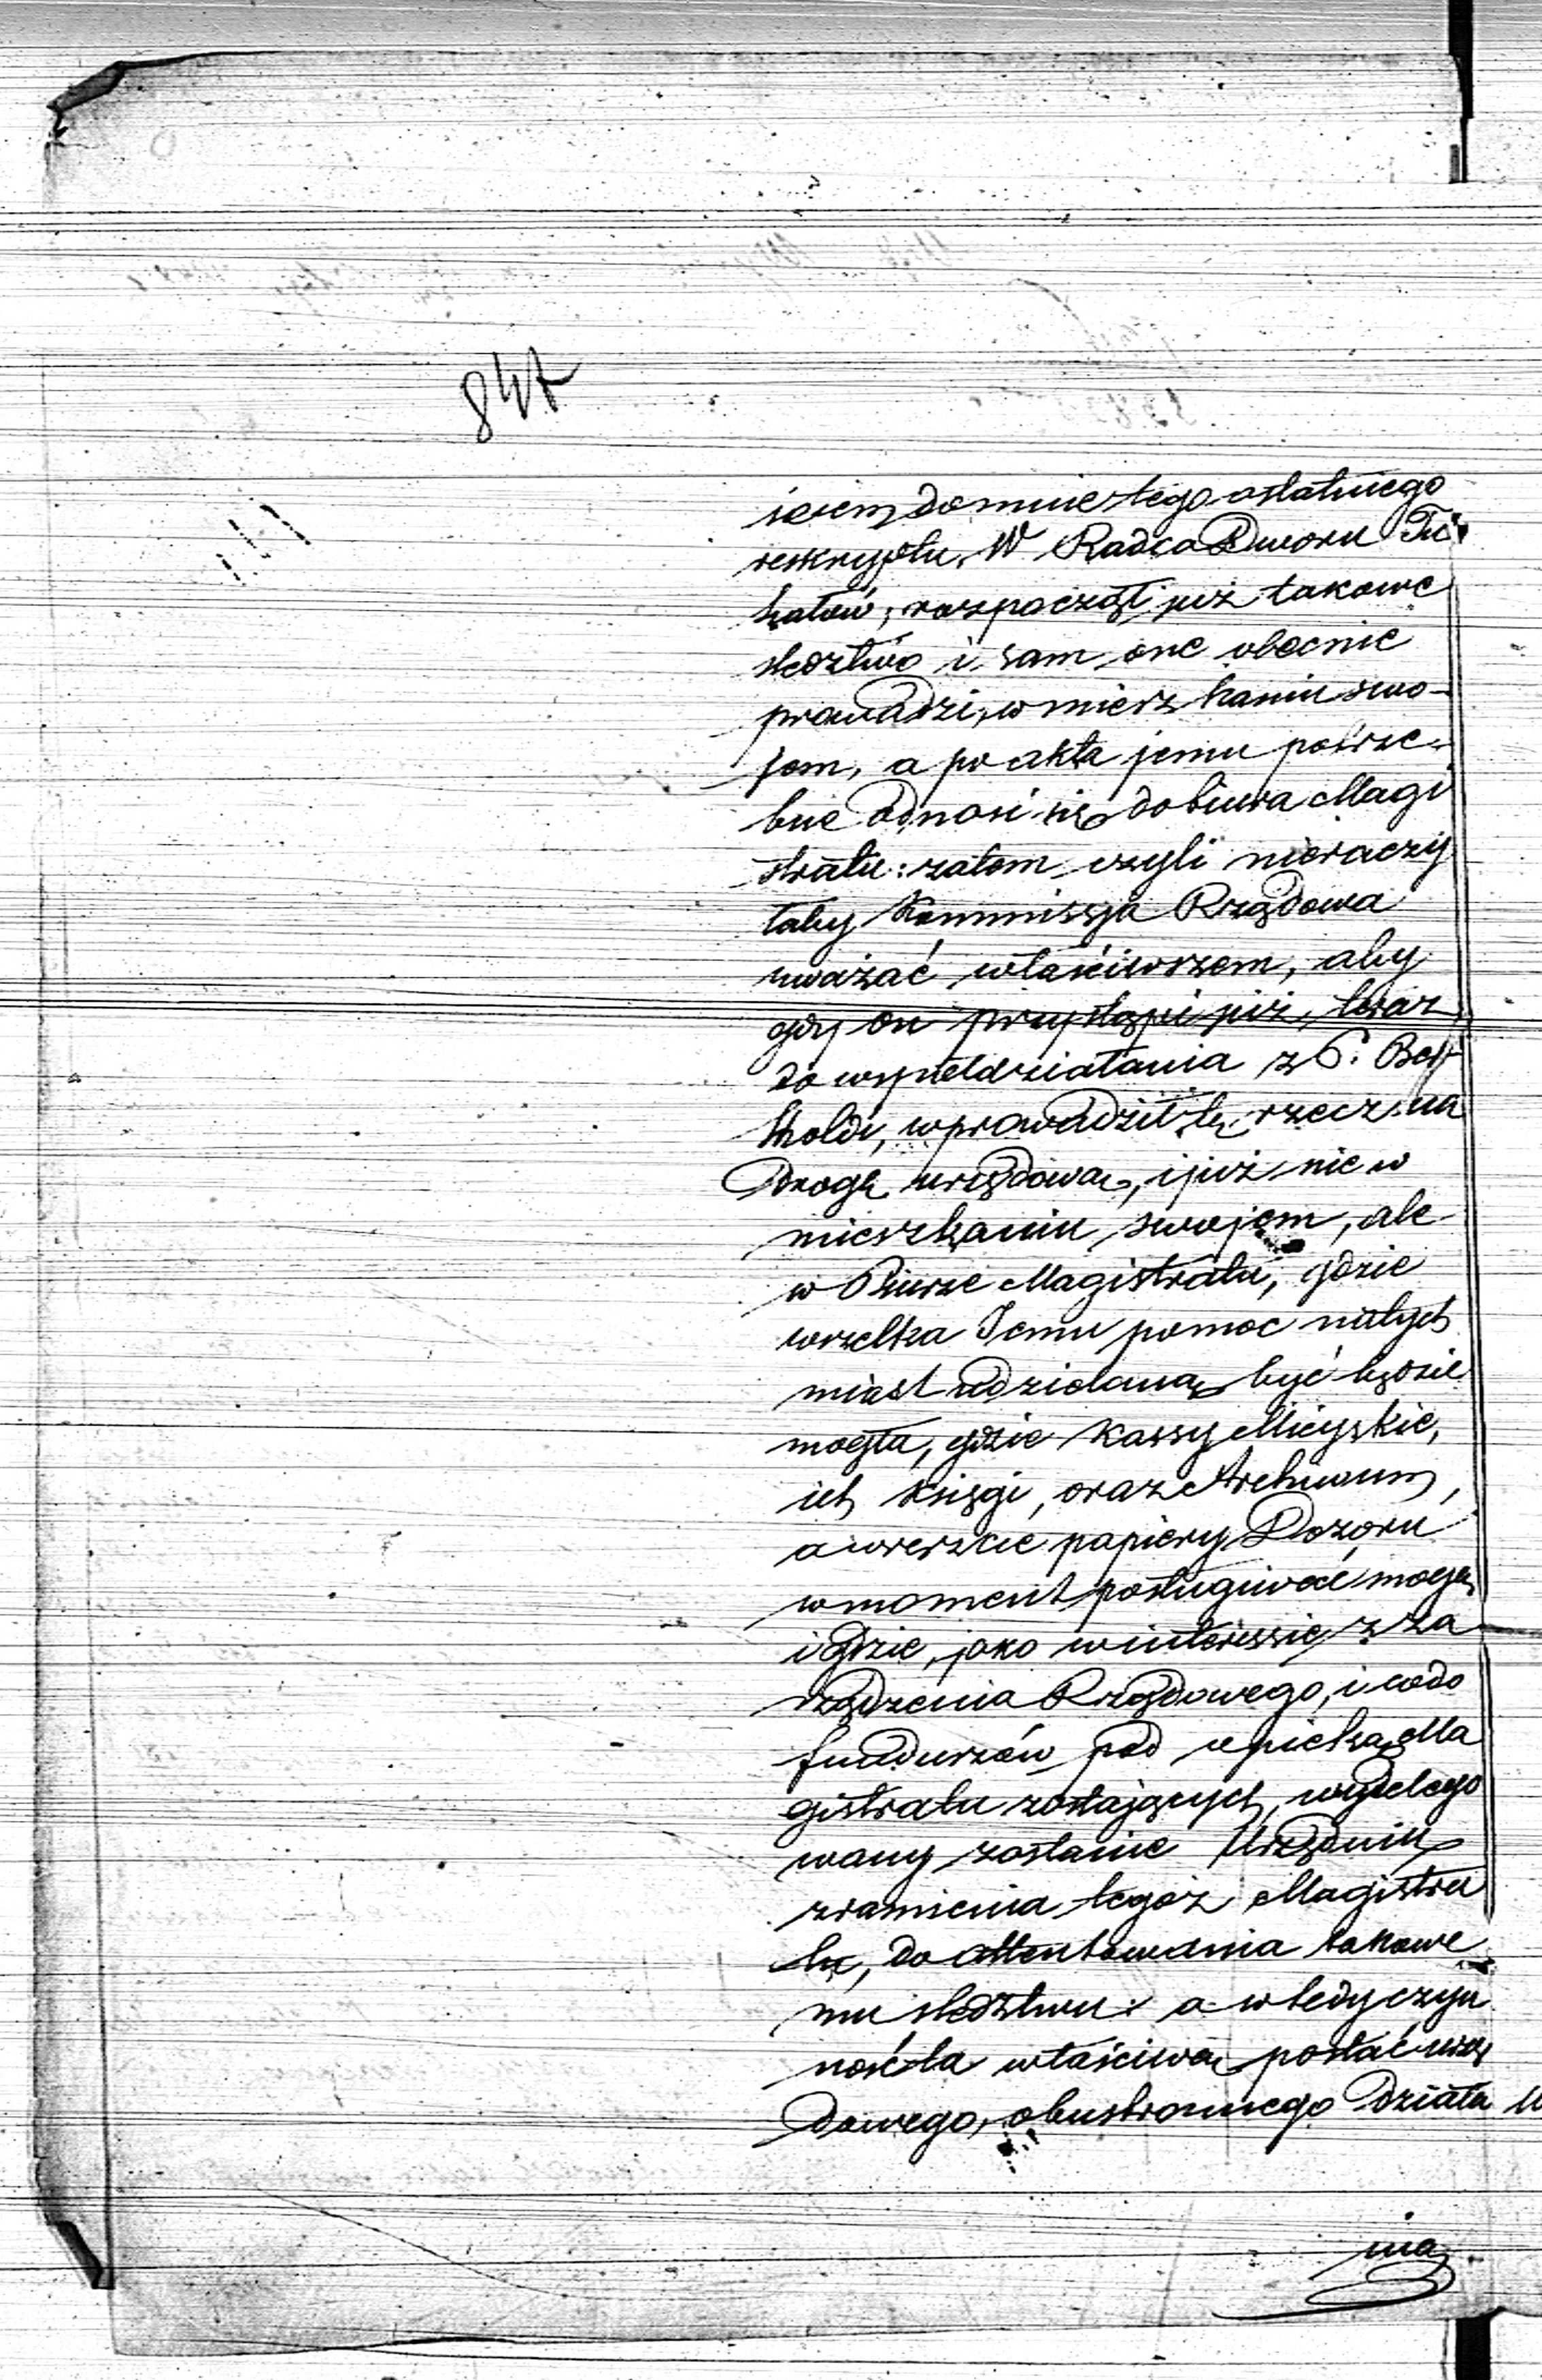 847
ściem do mnie tego ostatniego
reskryptu. W Radca Dworu Tu
hałow, rozpoczął już takowe
śledztwo i sam one obecnie
prowadzi, w mieszkaniu swo-
jem, a po akta jemu potrze-
bne odnosi się do biura Magi
stratu: zatem czyli nieraczy
łaby Kommissja Rządowa
uważać właściwszem, aby
gdy on przystąpi już, teraz
do wspołdziałania z P. Ber
tholdi, wprowadził tę rzecz na
drogę urzędową, i już nie w
mieszkaniu swojem, ale
w Biurze Magistratu, gdzie
wszelka Jemu pomoc natych
miast udzielaną być będzie
mogła, gdzie kassy Mieyskie,
ich księgi, oraz Archiwum,
a wreszcie papiery Dozoru
w moment posługiwać mogą
i gdzie, jako w interessie z za
rządzenia Rządowego, i co do
funduszów pod opieką Ma
gistratu zostających, wydelego
wany zostanie Urzędnik
z ramienia tegoż Magistra
tu, do attentowania takowe
mu śledztwu: a wtedy czyn
ność ta właściwą postać urzę
dowego, obustronnego działa
nia